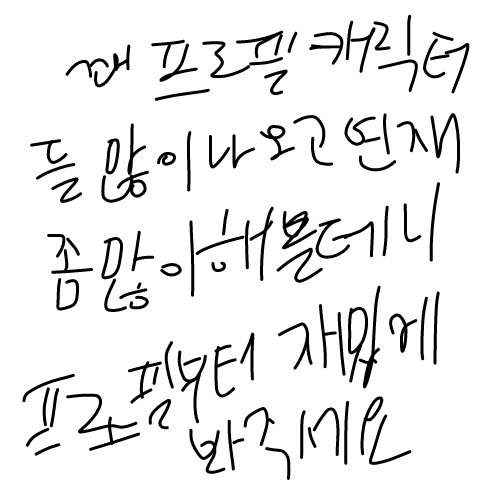 꽤 프로필 캐릭터
들 많이 나오고 연재
좀 많이 해볼테니
프로필부터 재밌게
봐주세요